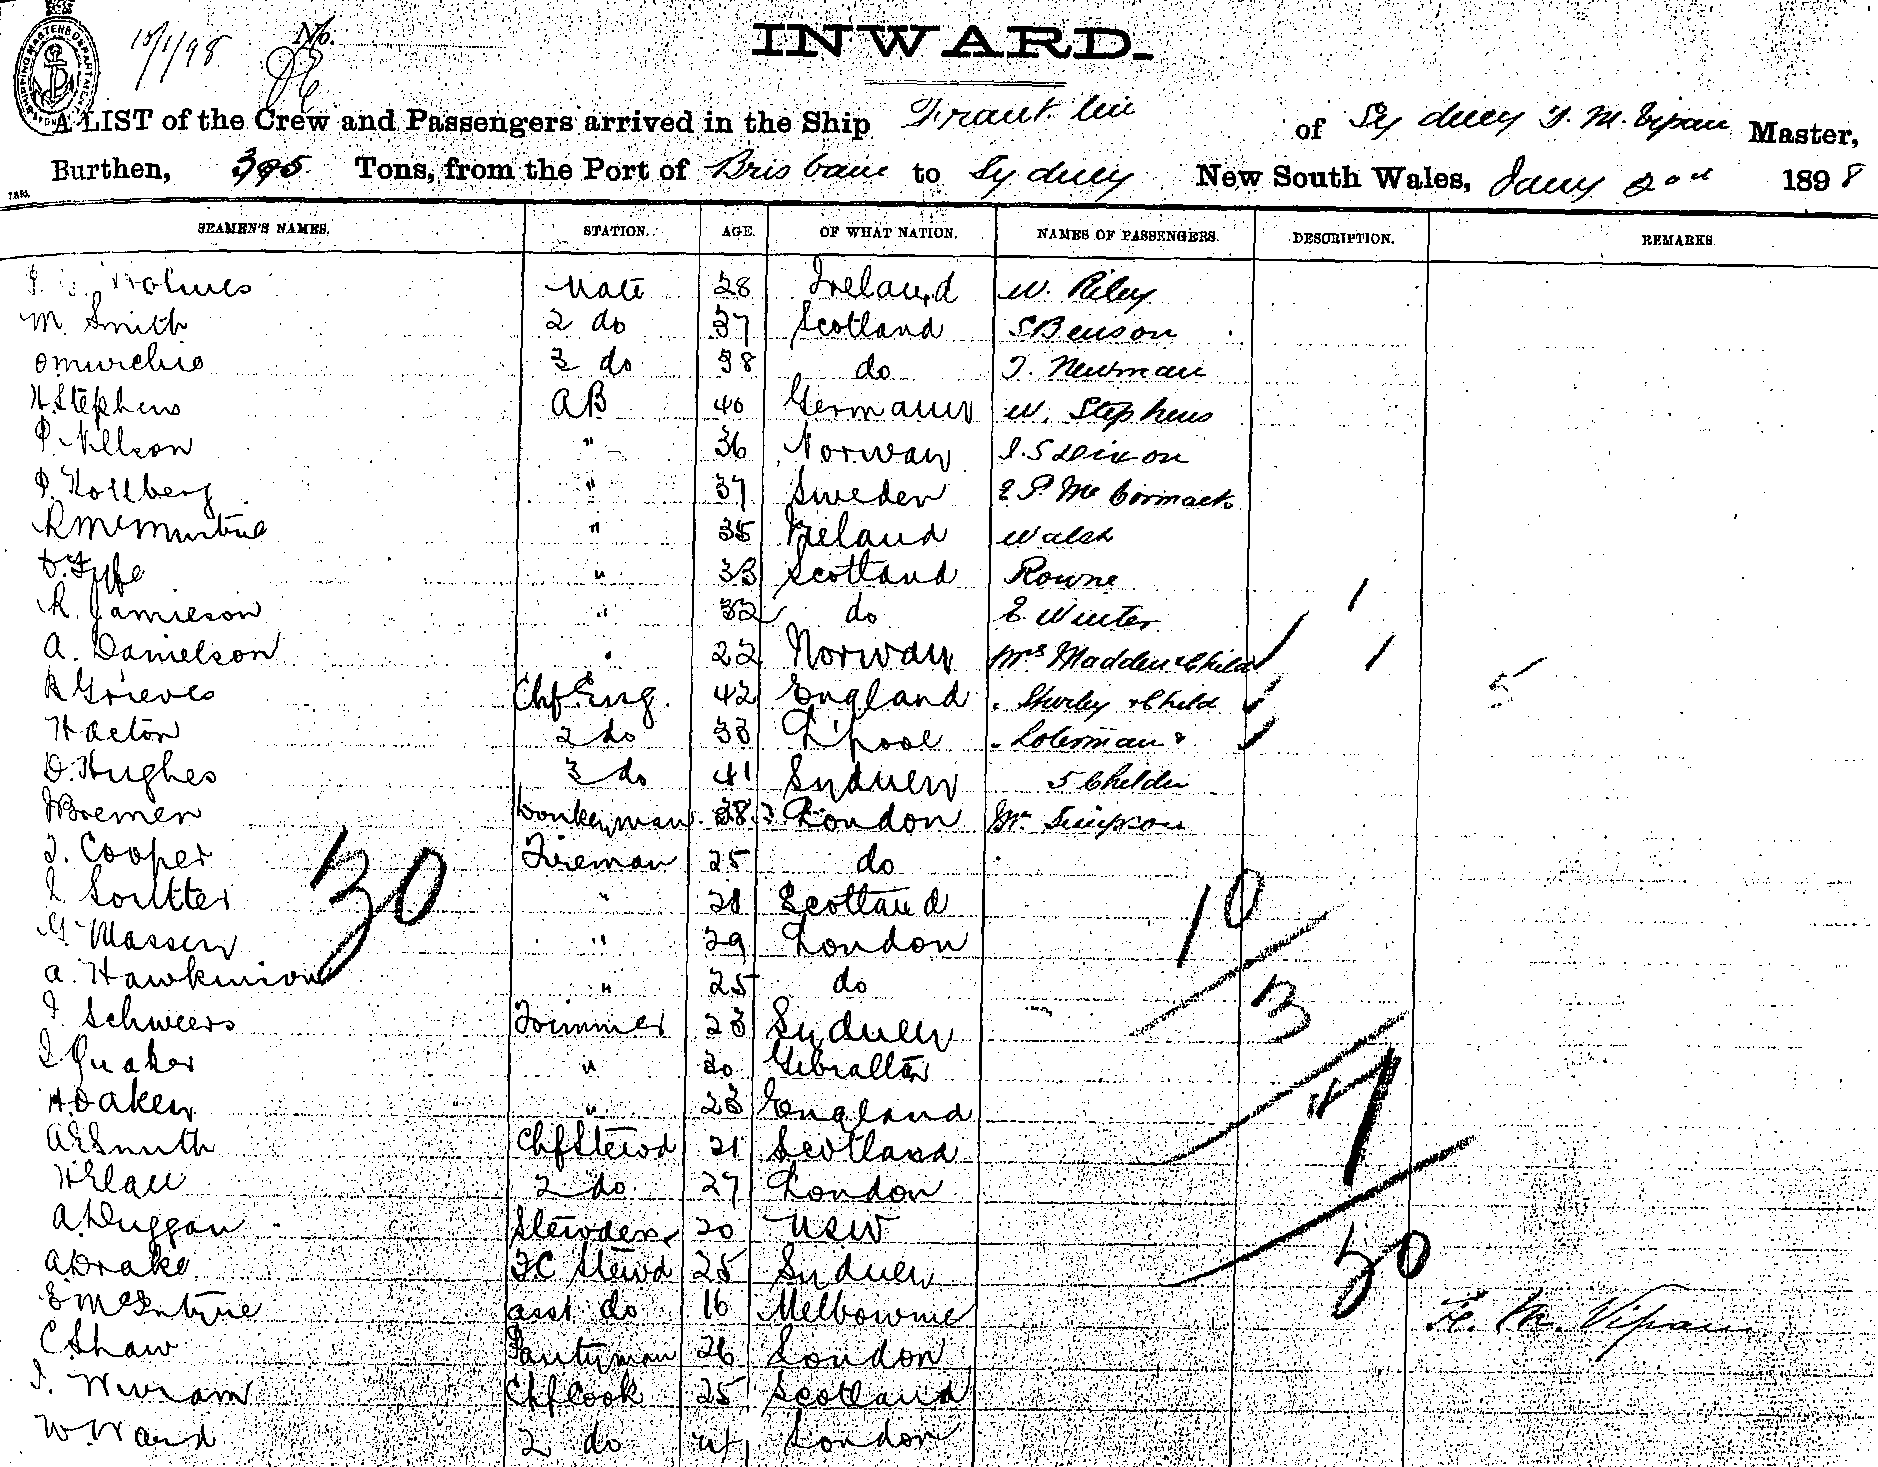 15/1/98 No.
INWARD.
A LIST of the Crew and Passengers arrived in the Ship of Sydney F. M. Vipan Master,
Burthen, 395 Tons, from the Port of Brisbane to Sydney New South Wales, Jany 2nd 1898
SEAMEN'S NAMES. STATION. AGE. OF WHAT NATION. NAMES OF PASSENGERS. DESCRIPTION. REMARKS.
Holmes Mate 28 Ireland W. Riley
M. Smith 2 do 37 Scotland S Benson
3 do 38 do T. Newman
H. Stephens AB 40 Germany W. Stephens
P. Nellson " 36 Norway Dixon
Kollberg " 37 Sweden E P. McCormack
R McMurtrie " 35 Ireland Walsh
D. Fyffe " 33 Scotland Rowne
R. Jamieson " 32 do E Winter 1
A. Danielson " 22 Norway Mrs Madden & Child 1
R Grieves Chf Eng. 42 England " Shirley & Child 5
H Acton 2 do 33 L'pool "
D. Hughes 3 do 41 Sydney 5 Childn
Donkeyman 38 London Mr Simpson
J. Cooper Fireman 25 do
J Soutter " 21 Scotland 10
30
" 29 London
A. Hawkinson " 25 do
Schweers Trimmer 23 Sydney 3
Quaker " 30 Gibraltar
H Oakey " 23 England 7
A E Smith Chf Stewd 21 Scotland
2 do 27 London
A. Duggan Stewdess 20 NSW
A Drake FC Stewd 25 Sydney 50
E McIntyre asst do 16 Melbourne F. M. Vipan
C Shaw Pantryman 26 London
Chf Cook 25 Scotland
W. Ward 2 do London